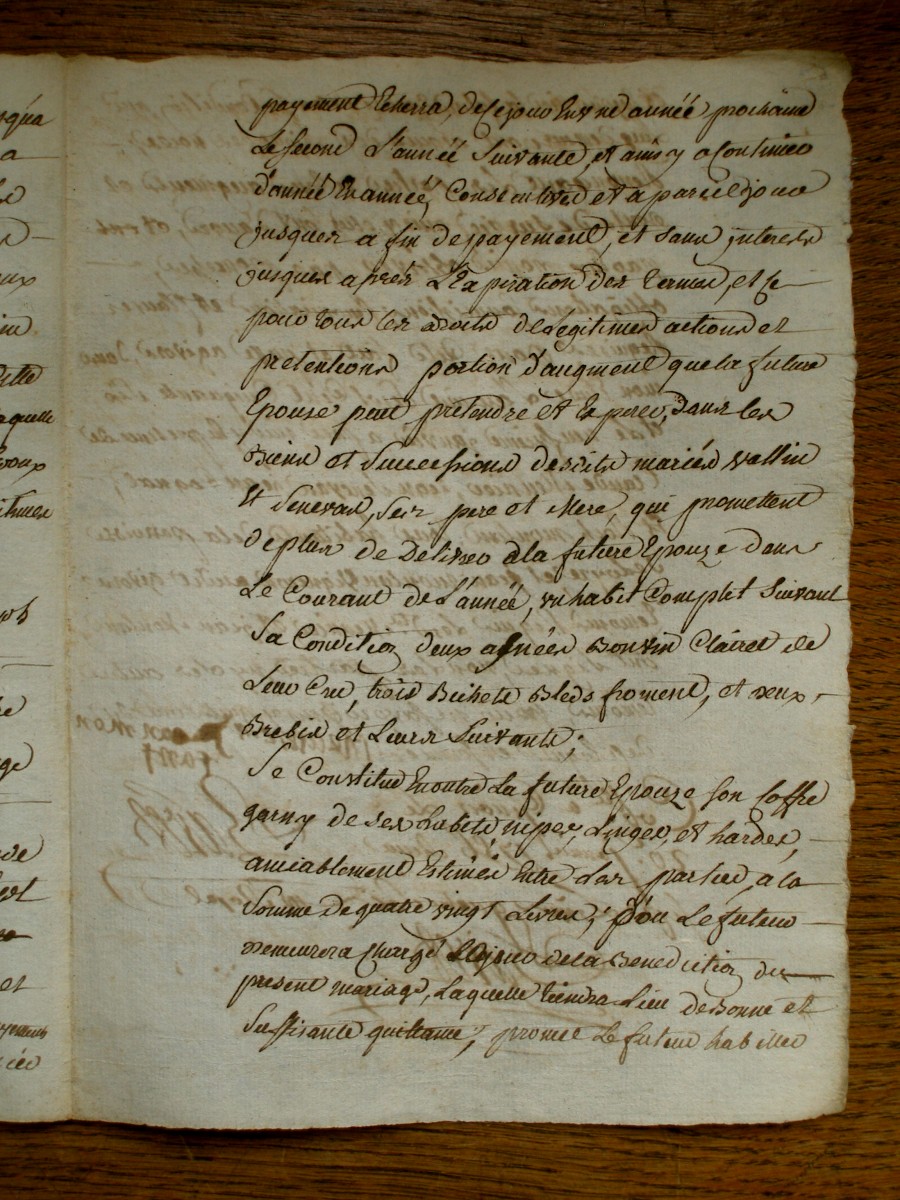 payement Echerra, de Ce jour En vne année prochaine
Le second L'année Suivante, et ainsy a Continuer
d'année En année, Consecutives et a pareil jour
jusques a fin de payement, et sans interests
jusques après L'Expiration des termes, et Ce
pour tous les droits de Légitimes actions et
pretentions portion d'augment que la future
Epouse peut pretendre et Esperer, dans les
Biens et Successions desdits mariés vallin
Et Senevas, Ses pere et Mere, qui promettent
de plus de Delivrer a la future Epouze dans
Le Courant de L'année, vn habit Complet Suivant
Sa Condition deux asnées Bon vin Clairet de
Leur Cru, trois Bichets Bleds froment, et deux
Brebis et Leurs Suivants;
Se Constitue En outre La future Epouze Son Coffre
garny de ses habits, nipes, Linges, et hardes,
amiablement Estimés Entre Les parties, a la
Somme de quatre vingt Livres, d'ou Le futeur
demeurera Chargé Le jour de la Benediction du
present mariage, Laquelle tiendra Lieu de Bonne et
Suffisante quittance, promet Le futeur habiller